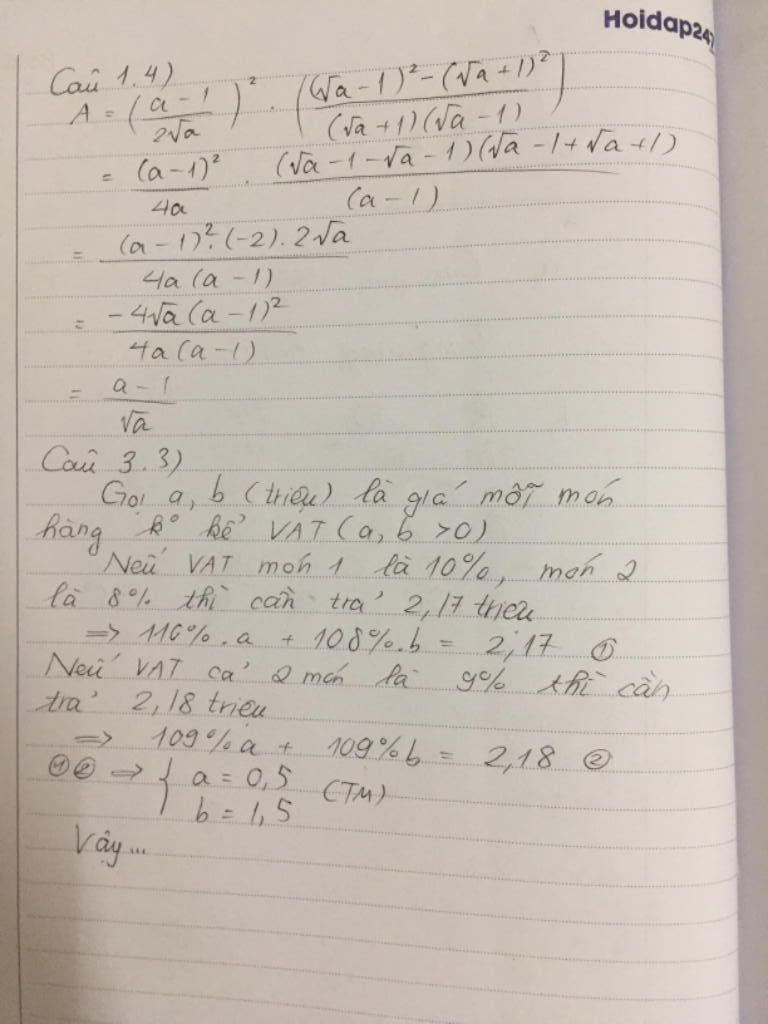 Hoidap247
Câu 1.4)
A = (a - 1 / 2√a)² . ((√a - 1)² - (√a + 1)² / (√a + 1)(√a - 1))
= (a - 1)² / 4a . (√a - 1 - √a - 1)(√a - 1 + √a + 1) / (a - 1)
= (a - 1)² . (-2) . 2√a / 4a (a - 1)
= -4√a (a - 1)² / 4a (a - 1)
= a - 1 / √a
Câu 3.3)
Gọi a, b (triệu) là giá mỗi món
hàng k° kể VAT (a, b > 0)
Nếu VAT món 1 là 10%, món 2
là 8% thì cần trả 2,17 triệu
=> 110%.a + 108%.b = 2,17 ①
Nếu VAT cả 2 món là 9% thì cần
trả 2,18 triệu
=> 109%a + 109%b = 2,18 ②
①② => { a = 0,5 (TM)
b = 1,5
Vậy...